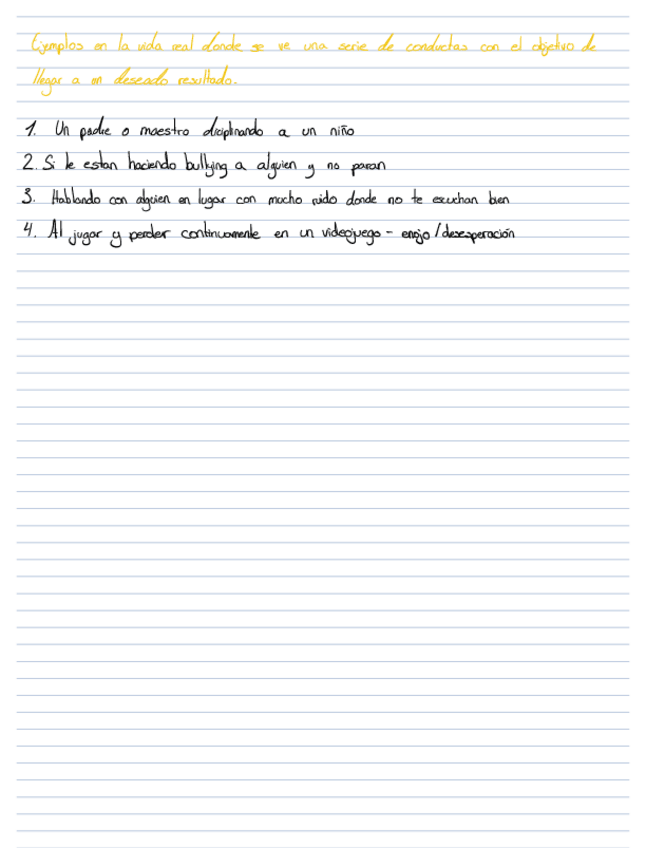 Ejemplos en la vida real donde se ve una serie de conductas con el objetivo de
llegar a un deseado resultado.
1. Un padre o maestro diciplinando a un niño
2. Si le estan haciendo bullying a alguien y no paran
3. Hablando con alguien en lugar con mucho ruido donde no te escuchan bien
4. Al jugar y perder continuamente en un videojuego - enojo / desesperación